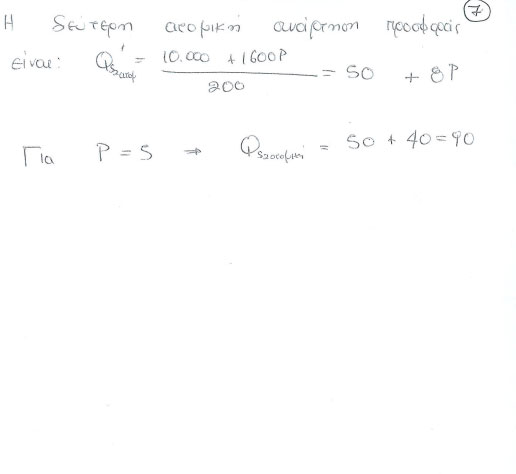 7
Η δεύτερη ατομική συνάρτηση προσφοράς
είναι: Qs₂ατομ' = 10.000 + 1600P / 200 = 50 + 8P
Για P = 5 → Qs₂ατομική = 50 + 40 = 90